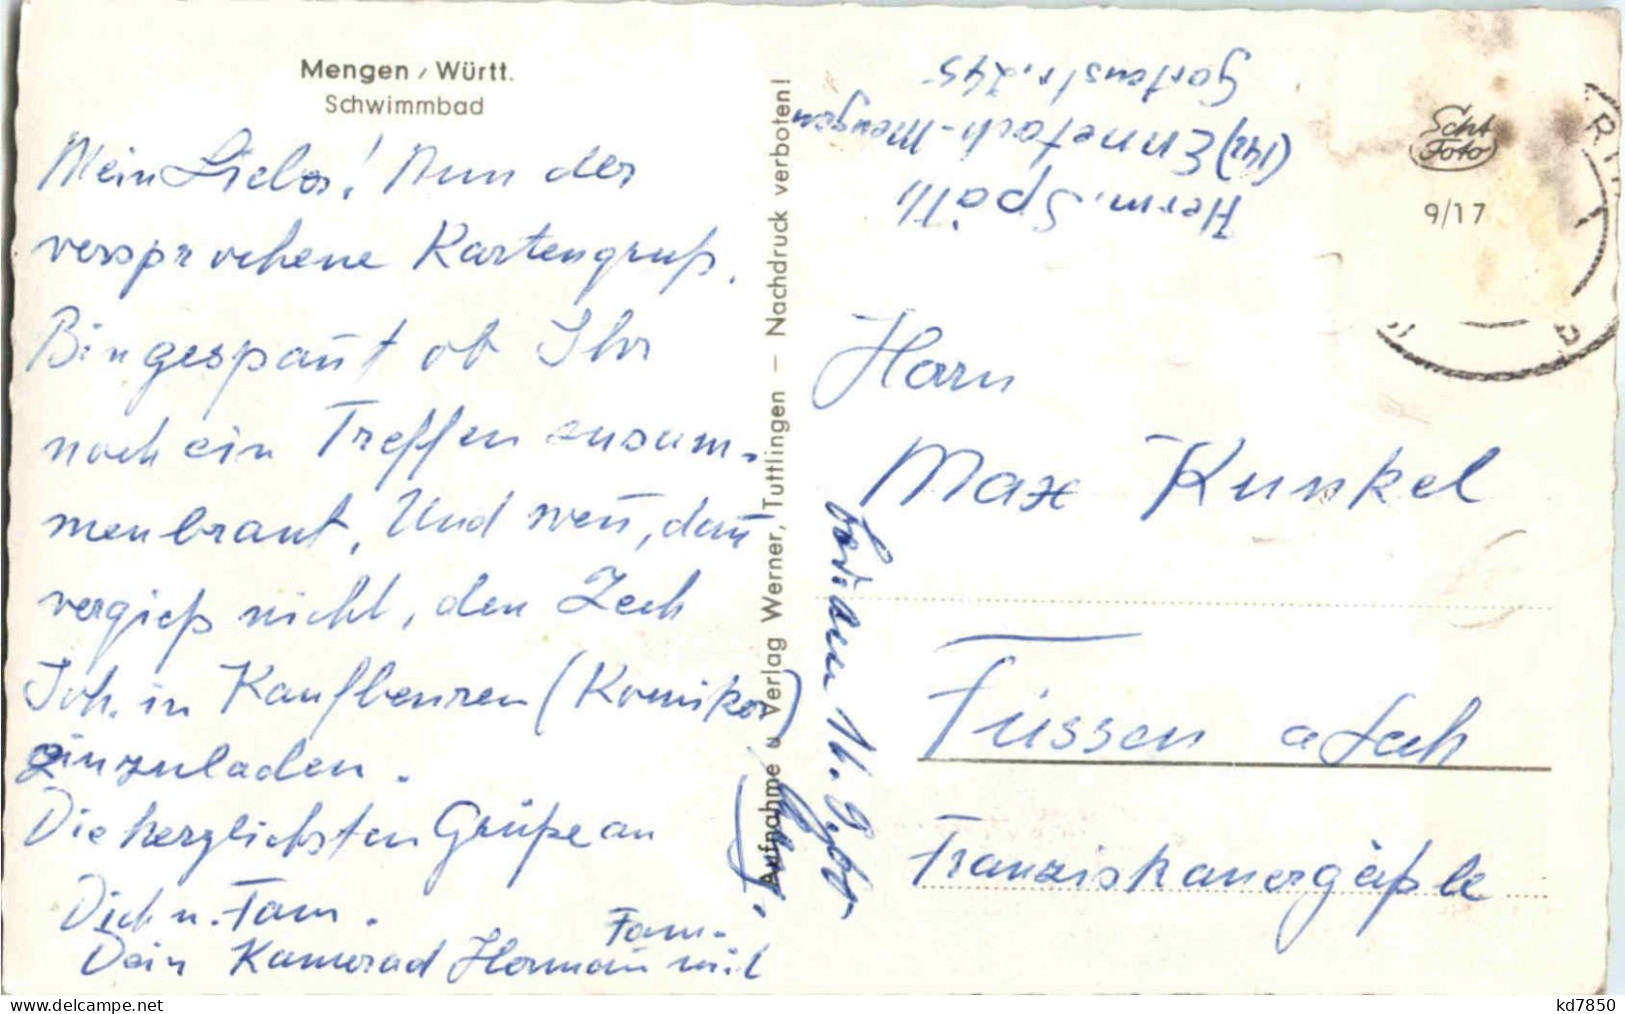 Mengen / Württ.
Schwimmbad
Mein Lieber! Nun der
versprochene Kartengruß.
Bin gespañt ob Ihr
noch ein Treffen zusam-
menbraut. Und weñ, dañ
vergieß nicht, den Zech
Joh. in Kaufbeuren (Komiker)
einzuladen.
Die herzlichsten Grüße an
Dich u. Fam.
Dein Kamerad Hermañ mit
Fam.
Aufnahme u. Verlag Werner, Tuttlingen – Nachdruck verboten!
Herm. Späth
(14b) Ennetach-Mengen
Gartenstr. 245
Scht
Foto
9/17
Herrn
Max Kunkel
Füssen a Lech
Franziskanergäßle
kd7850
delcampe.net